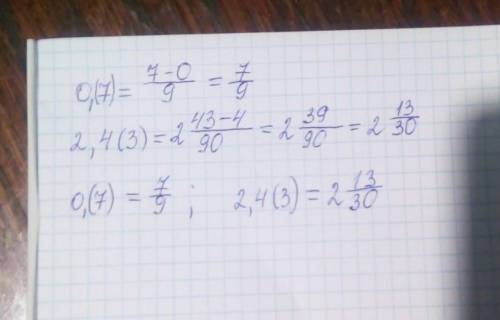 0,(7) = \frac{7-0}{9} = \frac{7}{9}
2,4(3) = 2\frac{43-4}{90} = 2\frac{39}{90} = 2\frac{13}{30}
0,(7) = \frac{7}{9} ; 2,4(3) = 2\frac{13}{30}